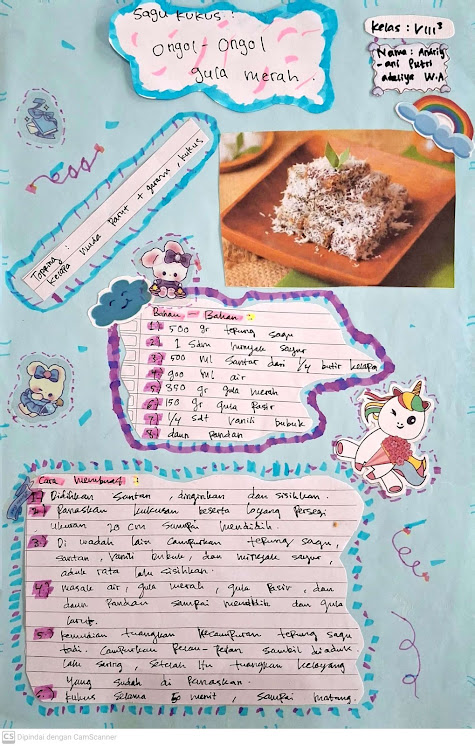 Sagu kukus :
Ongol-Ongol
gula merah.
Kelas : VIII³
Nama : Andriy
-ani Putri
W.A
Topping :
Kelapa muda Parut + garam, kukus
Bahan - Bahan :
1.) 500 gr tepung sagu
2.) 1 Sdm minyak sayur
3.) 500 ml Santan dari 1/4 butir kelapa
4.) 900 ml air
5.) 350 gr gula merah
6.) 150 gr gula Pasir
7.) 1/4 sdt vanili bubuk
8.) daun Pandan
Cara membuat :
1.) Didihkan Santan, dinginkan dan sisihkan.
2.) Panaskan kukusan beserta loyang persegi
ukuran 20 cm Sampai mendidih.
3.) Di wadah lain Campurkan tepung sagu,
santan, vanili bubuk, dan minyak sayur,
aduk rata lalu sisihkan.
4.) Masak air, gula merah, gula Pasir, dan
daun Pandan sampai mendidih dan gula
larut.
5.) Kemudian tuangkan kecampuran tepung sagu
tadi. Campurkan Pelan-Pelan sambil diaduk.
lalu saring, Setelah itu tuangkan keloyang
Yang sudah di Panaskan.
kukus selama menit, sampai matang.
CS Dipindai dengan CamScanner